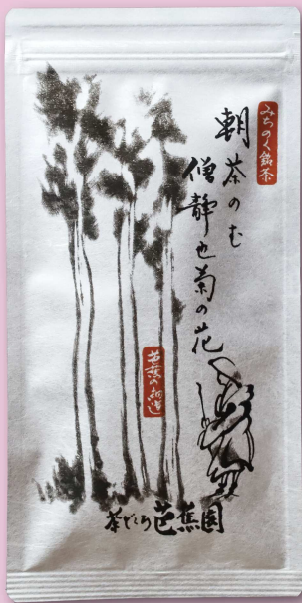 みちのく銘茶
朝茶のむ
僧静也菊の花
芭蕉の細道
茶どころ芭蕉園